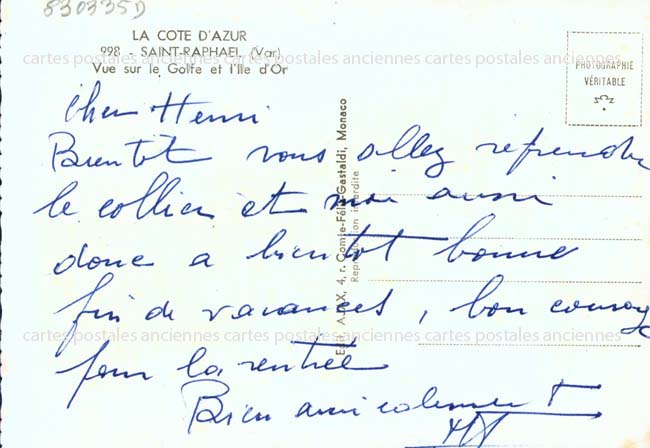 830335D
LA COTE D'AZUR
998 - SAINT-RAPHAEL (Var)
Vue sur le Golfe et l'Ile d'Or
cartes postales anciennes cartes postales anciennes cartes postales anciennes
PHOTOGRAPHIE
VÉRITABLE
Cher Henri
Bientôt vous allez reprendre
le collier et moi aussi
donc a bientot bonne
fin de vacances, bon courage
cartes postales anciennes cartes postales anciennes cartes postales anciennes
pour la rentrée
Bien amicalement
Edit. AJAX, 4, r. Comte-Félix-Gastaldi, Monaco
Reproduction interdite